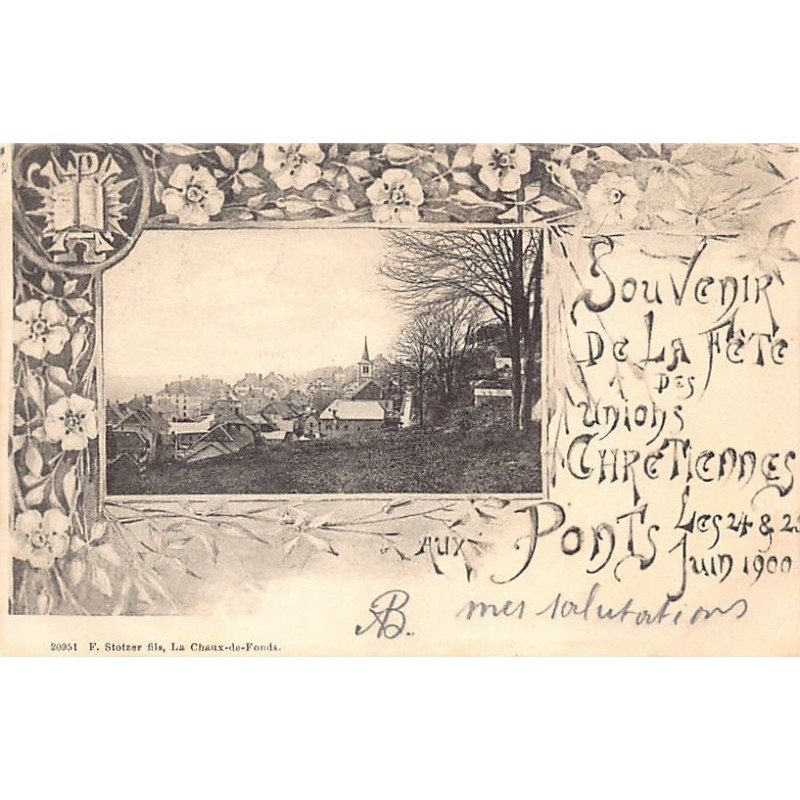 Souvenir
de la Fête
des
Unions
Chrétiennes
aux Ponts Les 24 & 2
Juin 1900
AB. mes salutations
20951 F. Stotzer fils, La Chaux-de-Fonds.